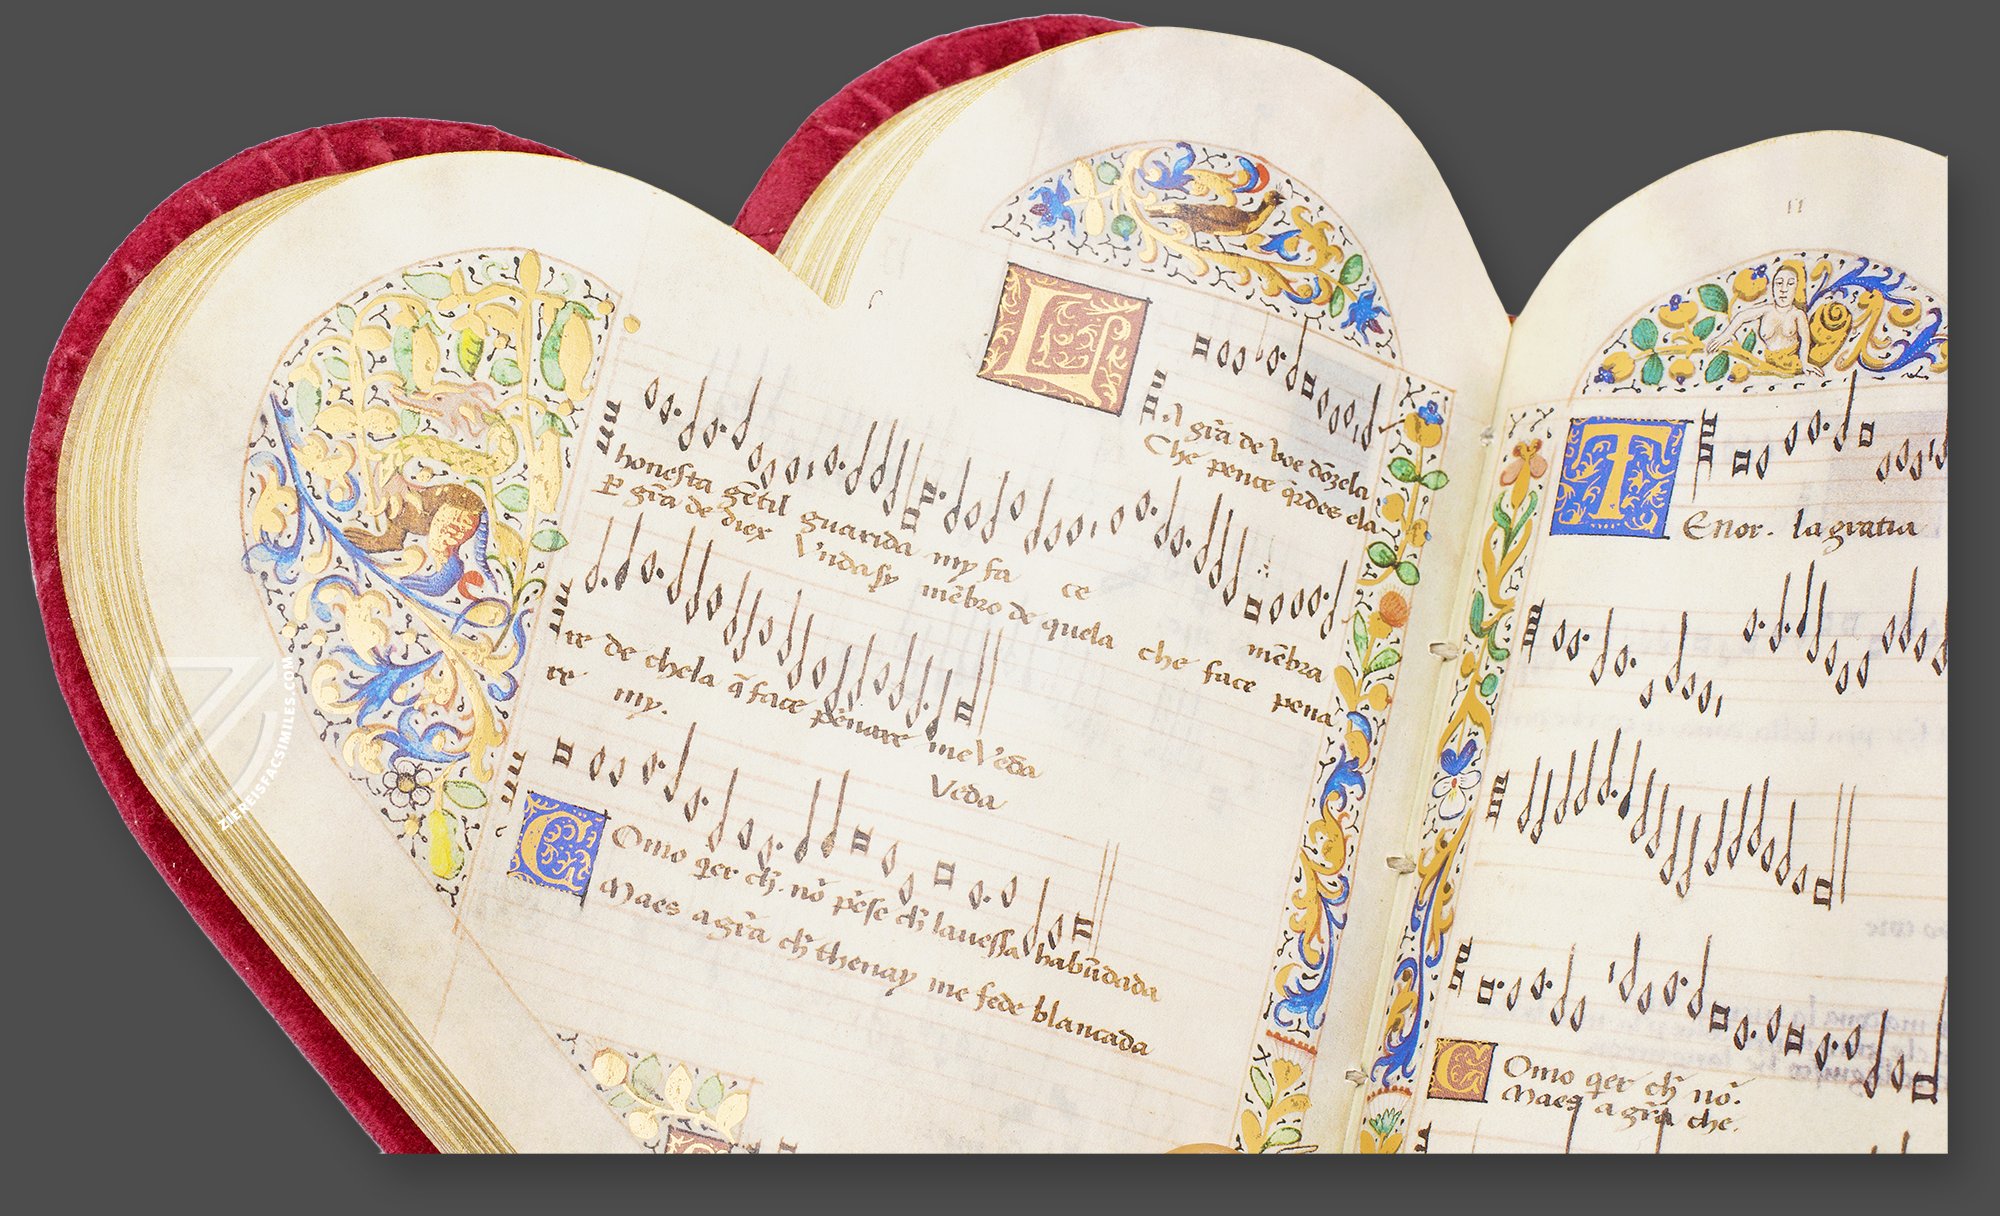 L
A grã de voe dõzela
Che pence q̃rdes ela
honesta gẽtil guarida my fa ce mẽbra
P grã de diex Vnda sy mẽbro de quela che face pena
re de chela q̃ face penare me Veda
re my. Veda
Como q̃er ch̃ nõ pẽse ch̃ lauessa habũdada
Maes a grã ch̃ thenay me fede blancada
II
TEnor. la gratia
Como q̃er ch̃ nõ.
Maes a grã che.
ZIEREISFACSIMILES.COM